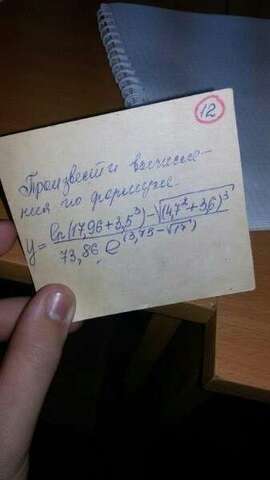 12
Произвести вычисле-
ния по формуле.
y = (ln(17,96 + 3,5³) - √((4,7² + 3,6)³)) / (73,86 e^(3,75 - √17))